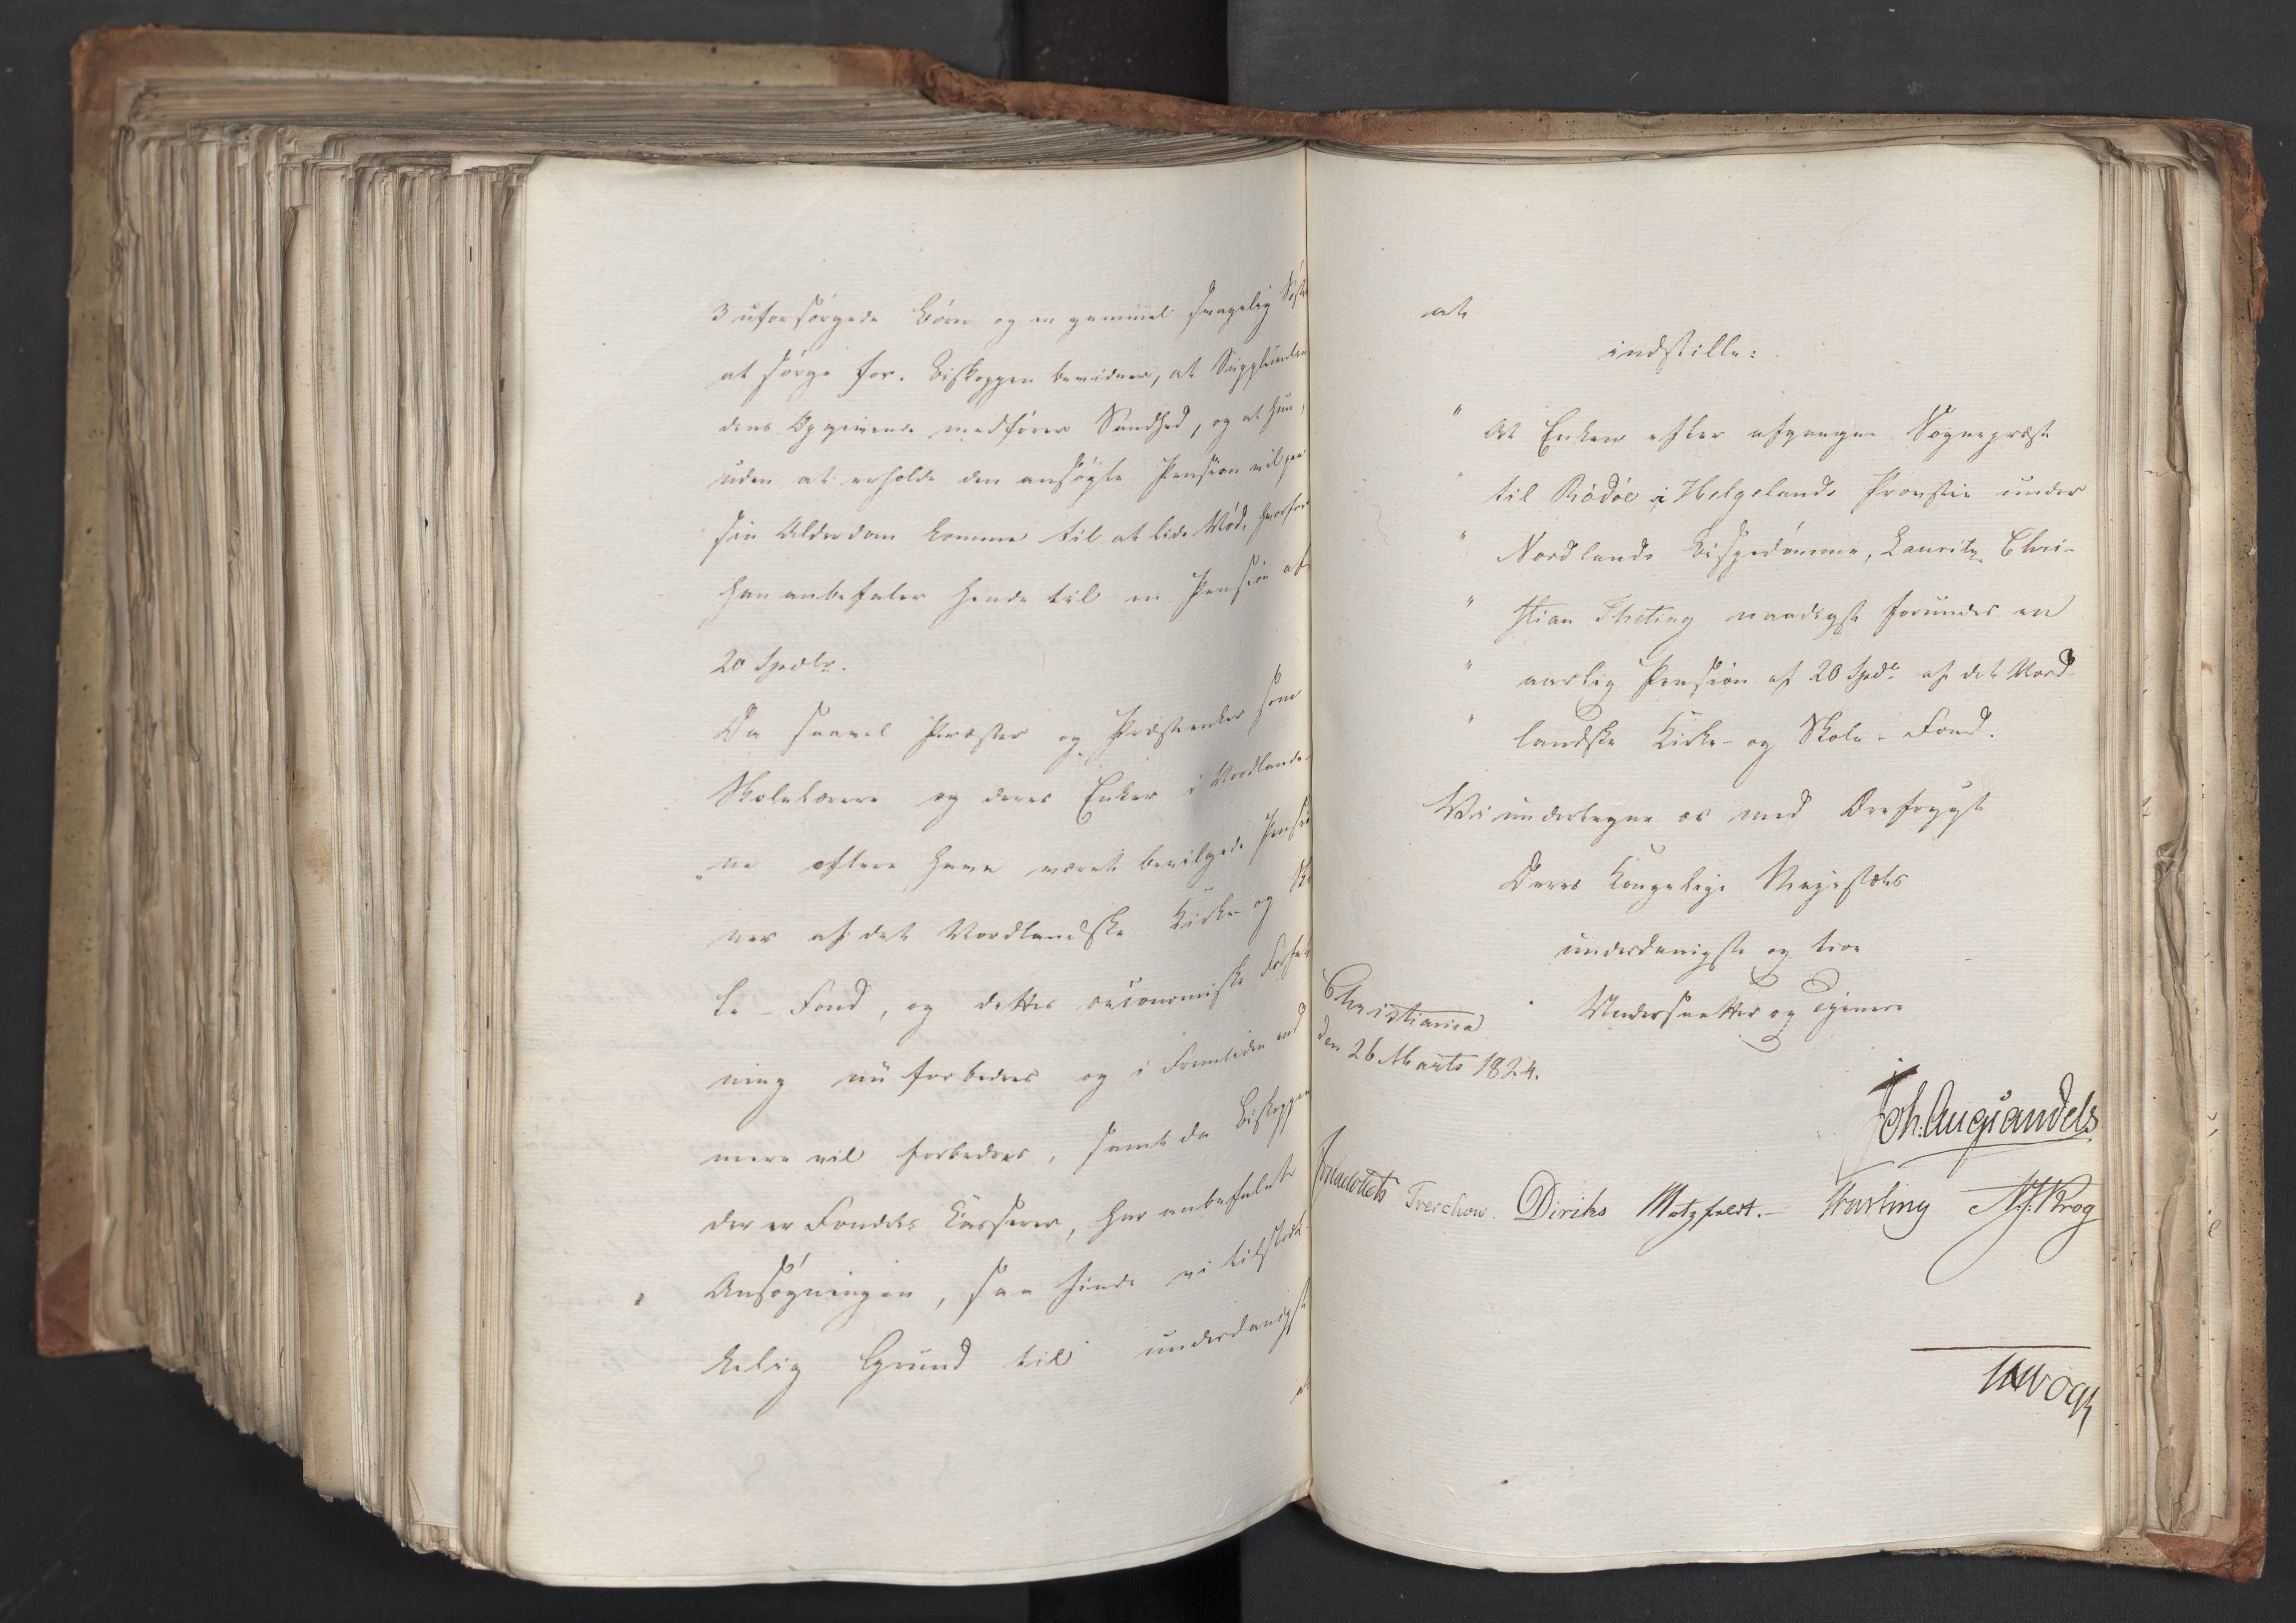 3 uforsørgede Børn og en gammel svagelig
at sørge for. Biskoppen bevidner, at
dens Opgivende medfører Sandhed, og at hun,
uden at erholde den ansøgte Pension vil paa
sin Alderdom komme til at lide Nød, hvorfor
han anbefaler hende til en Pension af
20 Spdlr.
Da saavel Præster og Præsteenker som
Skolelærere og deres Enker i Nordlande-
ne oftere have været bevilgede Pensio
ner af det Nordlandske Kirke- og Sko
le-Fond, og dettes oeconomiske Forfat
ning nu forbedres og i Fremtiden end
mere vil forbedres, samt da Biskoppen
der er Fondets Casserer, har anbefalet
Ansøgningen, saa finde vi tilstræk-
kelig Grund til underdanigst
at
at
indstille:
" At Enken efter afgangne Sognepræst
" til Rødøe i Helgelands Provstie under
" Nordlands Bispedømme, Lauritz Chri-
" stian Theting naadigst forundes en
" aarlig Pension af 20 Spdr af det Nord-
" landske Kirke- og Skole-Fond.
Vi undertegne os med Ærefrygt
Deres Kongelige Majestæts
underdanigste og troe
Undersaatter og Tjenere
Christiania
den 26 Marts 1824.
Joh. Aug. Sandels
Sommerfeldt Treschow. Diriks Motzfeldt.- Fasting N.J. Krog
Vogt